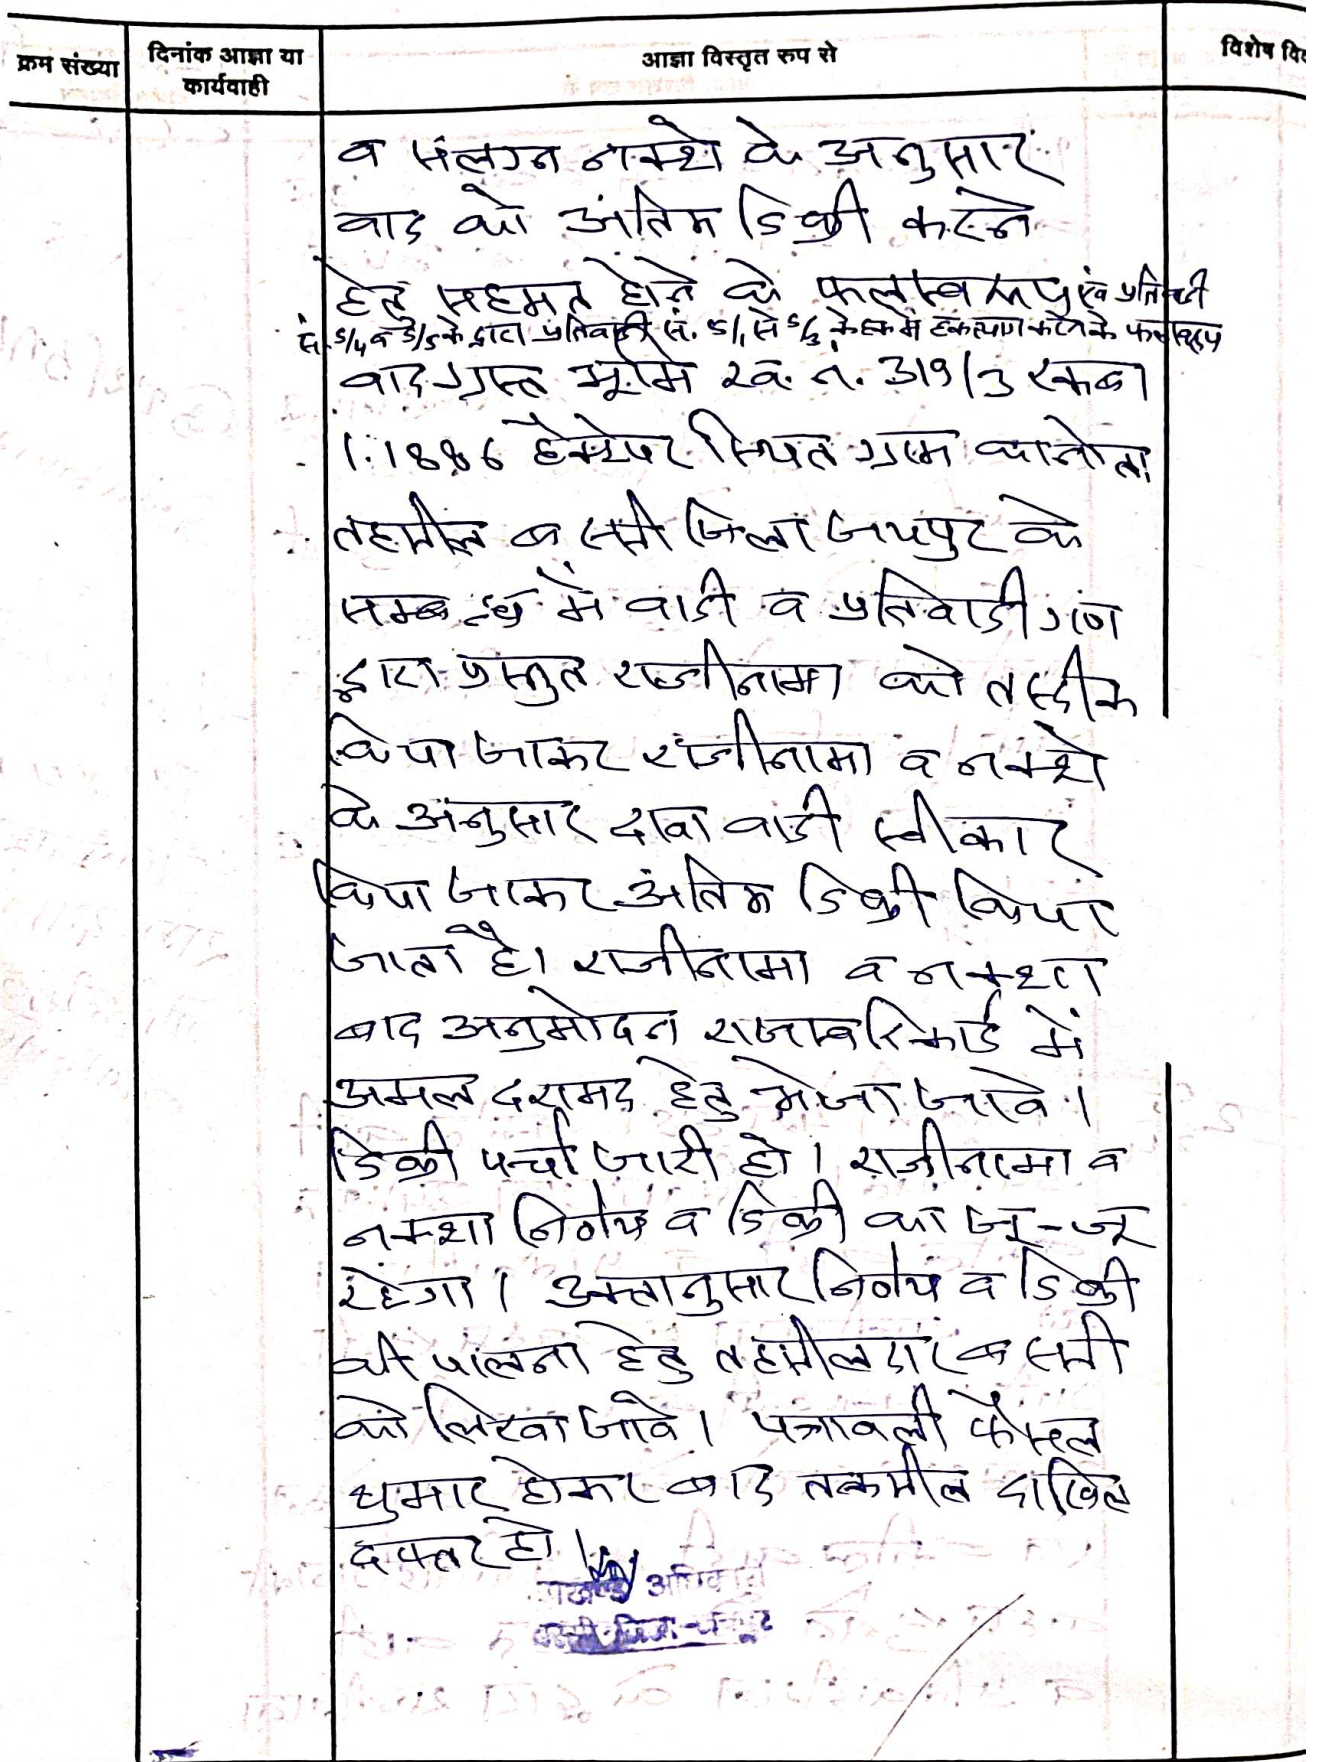 क्रम संख्या
दिनांक आज्ञा या
कार्यवाही
आज्ञा विस्तृत रुप से
विशेष वि
व संलग्न नक्शे के अनुसार
वाद को अंतिम डिक्री करने
हेतु सहमत होने के फलस्वरूप एवं प्रतिवादी
सं. 5/4 व 5/5 के द्वारा प्रतिवादी सं. 5/1 से 5/3 के हक में हकत्याग करने के फलस्वरूप
वादग्रस्त भूमि ख. नं. 319/3 रकबा
1.1886 हैक्टेयर स्थित ग्राम कानोता
तहसील बस्सी जिला जयपुर के
सम्बन्ध में वादी व प्रतिवादीगण
द्वारा प्रस्तुत राजीनामा को तस्दीक
किया जाकर राजीनामा व नक्शे
के अनुसार दावा वादी स्वीकार
किया जाकर अंतिम डिक्री किया
जाता है। राजीनामा व नक्शा
बाद अनुमोदन राजस्व रिकार्ड में
अमल दरामद हेतु भेजा जावे।
डिक्री पर्चा जारी हो। राजीनामा व
नक्शा निर्णय व डिक्री का जु-जू
रहेगा। उक्तानुसार निर्णय व डिक्री
की पालना हेतु तहसीलदार बस्सी
को लिखा जावे। पत्रावली फैसल
शुमार होकर बाद तकमील दाखिल
दफ्तर हो।
अधिकारी